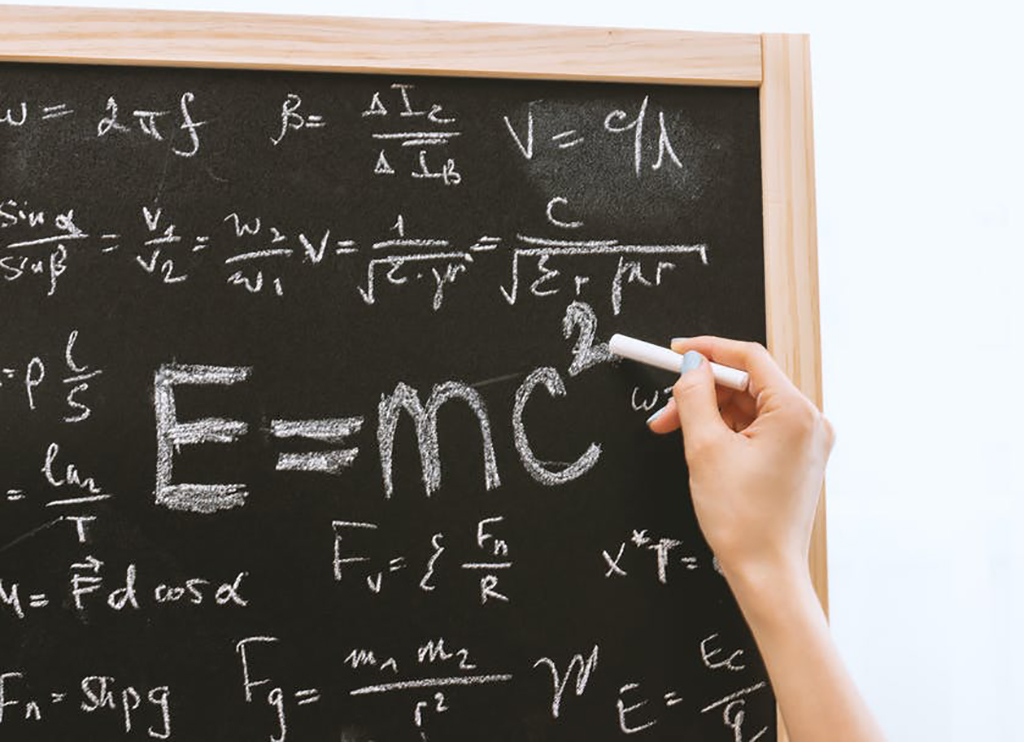 ω = 2πf β = ΔI_C / ΔI_B V = c/λ
sin α / sin β = V₁ / V₂ = n₂ / n₁ V = 1 / √(ε·μ) = C / √(ε_r · μ_r)
= ρ l / S
E = mc²
ω
= ln 2 / T
F_v = { F_n / R
x*T =
= F⃗ d cos α
F_n = Shpg F_g = m₁ m₂ / r² E = E_C / q